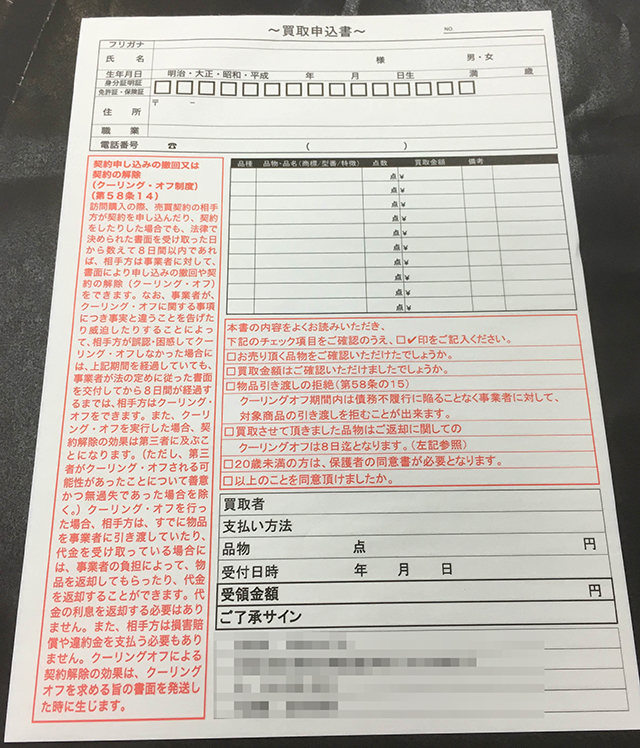 ～買取申込書～
NO.
フリガナ
氏名 様 男・女
生年月日 明治・大正・昭和・平成 年 月 日生 満 歳
身分証明証
免許証・保険証
〒 －
住所
職業
電話番号 ☎ ( )
契約申し込みの撤回又は
契約の解除
(クーリング・オフ制度)
(第58条14)
訪問購入の際、売買契約の相手
方が契約を申し込んだり、契約
をしたりした場合でも、法律で
決められた書面を受け取った日
から数えて8日間以内であれ
ば、相手方は事業者に対して、
書面により申し込みの撤回や契
約の解除(クーリング・オフ)
をできます。なお、事業者が、
クーリング・オフに関する事項
につき事実と違うことを告げた
り威迫したりすることによっ
て、相手方が誤認・困惑してクー
リング・オフしなかった場合に
は、上記期間を経過していても、
事業者が法の定めに従った書面
を交付してから8日間が経過す
るまでは、相手方はクーリング・
オフをできます。また、クーリ
ング・オフを実行した場合、契
約解除の効果は第三者に及ぶこ
とになります。(ただし、第三
者がクーリング・オフされる可
能性があったことについて善意
かつ無過失であった場合を除
く。)クーリング・オフを行っ
た場合、相手方は、すでに物品
を事業者に引き渡していたり、
代金を受け取っている場合に
は、事業者の負担によって、物
品を返却してもらったり、代金
を返却することができます。代
金の利息を返却する必要はあり
ません。また、相手方は損害賠
償や違約金を支払う必要もあり
ません。クーリングオフによる
契約解除の効果は、クーリング
オフを求める旨の書面を発送し
た時に生じます。
品種 品物・品名(商標/型番/特徴) 点数 買取金額 備考
点 ¥
点 ¥
点 ¥
点 ¥
点 ¥
点 ¥
点 ¥
点 ¥
点 ¥
点 ¥
本書の内容をよくお読みいただき、
下記のチェック項目をご確認のうえ、□✔印をご記入ください。
□お売り頂く品物をご確認いただけたでしょうか。
□買取金額はご確認いただけましたでしょうか。
□物品引き渡しの拒絶(第58条の15)
クーリングオフ期間内は債務不履行に陥ることなく事業者に対して、
対象商品の引き渡しを拒むことが出来ます。
□買取させて頂きました品物はご返却に関しての
クーリングオフは8日迄となります。(左記参照)
□20歳未満の方は、保護者の同意書が必要となります。
□以上のことを同意頂けましたか。
買取者
支払い方法
品物 点 円
受付日時 年 月 日
受領金額 円
ご了承サイン